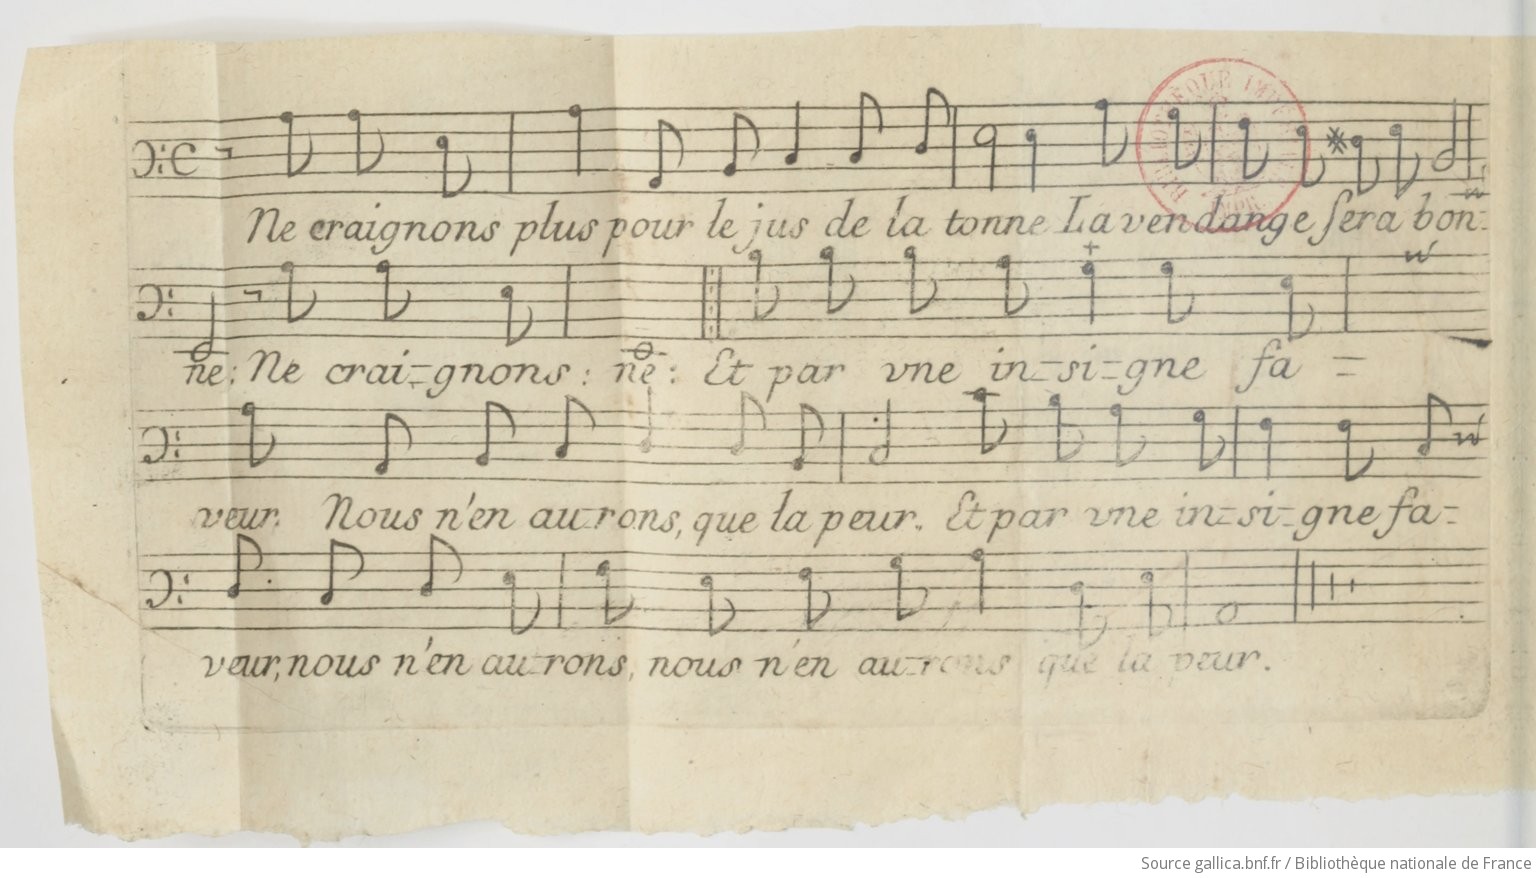 Ne craignons plus pour le jus de la tonne La vendange sera bon=
ne: Ne crai=gnons: ne: Et par vne in=si=gne fa=
veur. Nous n'en au=rons, que la peur. Et par vne in=si=gne fa=
veur, nous n'en au=rons, nous n'en au=rons que la peur.
Source gallica.bnf.fr / Bibliothèque nationale de France